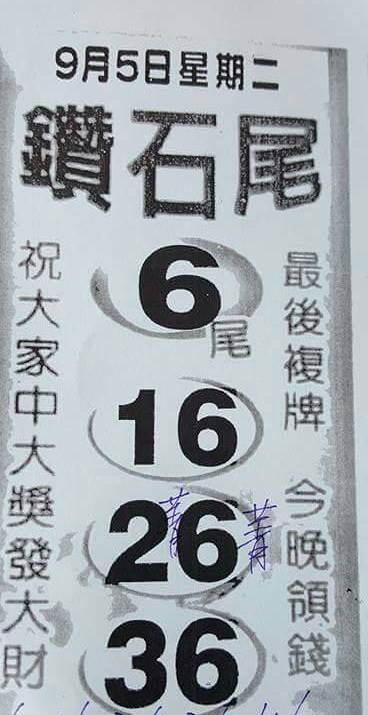 9月5日星期二
鑽石尾
最後複牌 今晚領錢
6尾
16
26
36
菁 菁
祝大家中大獎發大財